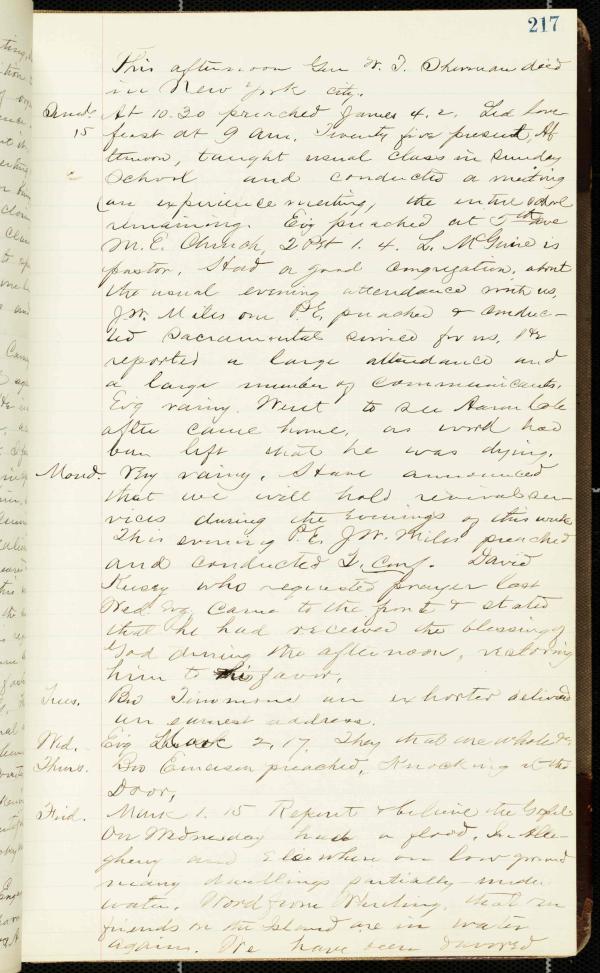 217
This afternoon Gen W. T. Sherman died
in New York city.
Sund. At 10.30 preached James 4. 2. Led love
15 feast at 9 am. Twenty five present, Af
ternoon, taught usual class in Sunday
School and conducted a meeting
(an experience meeting, the entire school
remaining. Evg preached at 5th Ave
M. E. Church, 2 Pet 1. 4. L. McGuire is
pastor. Had a good congregation, about
the usual evening attendance with us.
J. W. Miles our P. E. preached & conduc-
ted Sacramental service for us. He
reported a large attendance and
a large number of communicants.
Evg rainy. Went to see Aaron
after came home, as word had
been left that he was dying.
Mond. Very rainy. Have announced
that we will hold revival ser-
vices during the Evenings of this week
This evening P. E. J. W. Miles preached
and conducted Q. Conf. David
who requested prayer last
Wed Evg, came to the front & stated
that he had received the blessing of
God during the afternoon, restoring
him to his favor.
Tues. Bro Timmons an exhorter delivered
an earnest address.
Wed. Evg Mark 2, 17. They that are whole &c
Thurs. Bro Emerson preached, Knocking at the
Door,
Frid. Mark 1. 15 Repent & believe the Gospel
On Wednesday had a flood, in Alle-
gheny and Elsewhere on low ground
many dwellings partially under
water. Word from Wheeling, that our
friends on the Island are in water
again. We have been favored